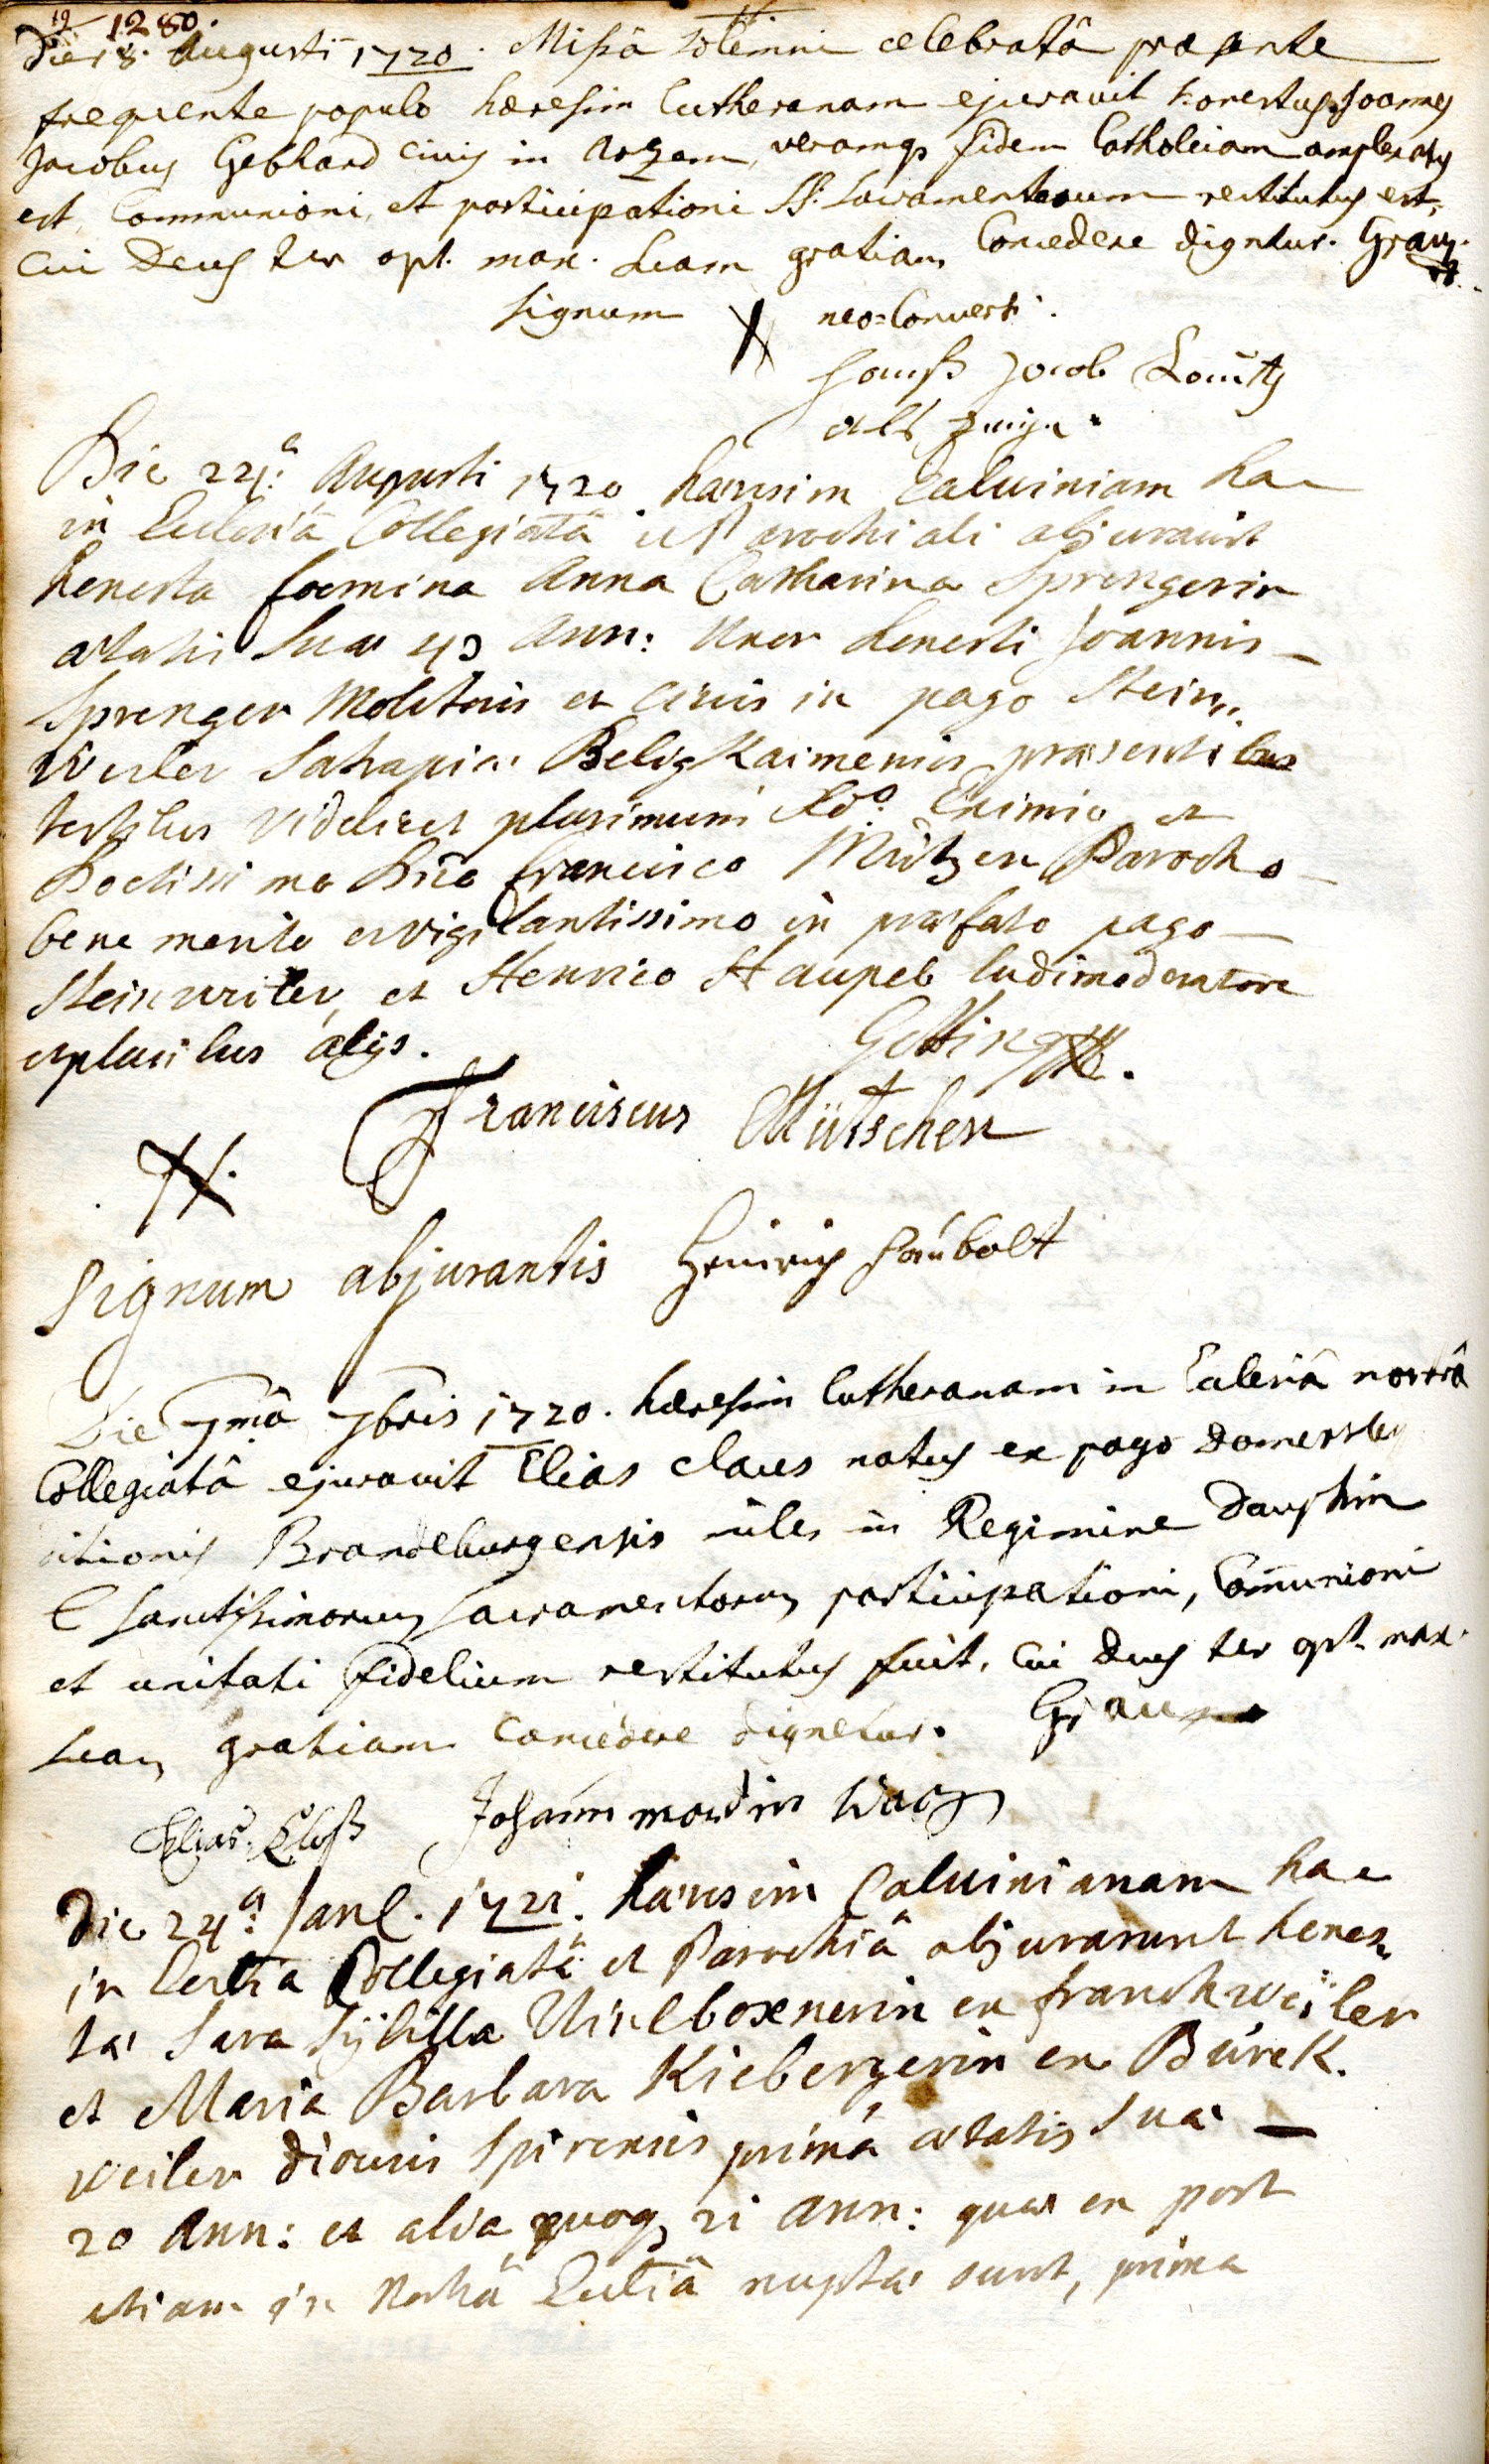 19 1280.
Die 18. Augusti 1720. Missâ solemni celebratâ praesente
frequente populo haeresim Lutheranam ejuravit honestus Joannes
Jacobus Gebhard civis in veramq3 fidem Catholicam amplexatus
est, Communioni, et participationi SS. Sacramentorum restitutus est,
Cui Deus ter opt. max. suam gratiam Concedere dignetur. Graus.
signum neo=Conversi.
Hanß Jacob
als zeuge
Die 22.a Augusti 1720 haeresim Calviniam hac
in Ecclesiâ Collegiatâ et Parochiali abjuravit
honesta foemina Anna Catharina Sprengerin
aetatis suae 43 Ann: Uxor honesti Joannis
Sprenger Molitoris et Civis in pago Stein,,
Weiler Satrapiae praesentibus
testibus videlicet plurimum Rdo. Eximio et
Doctissimo Dno Francisco Mützen Parocho
bene merito et vigilantissimo in praefato pago
Steinweiler, et Henrico Haupelt ludimoderatore
et pluribus alijs.
Getting
Franciscus Mütschen
Signum abjurantis Heinrich Haubolt
Die 7mâ 7bris 1720. haeresim Lutheranam in Eccleriâ nostrâ
Collegiatâ ejuravit Elias claus natus ex pago
ditionis Brandeburgensis miles in Regimine Dauphin
E sanctissimorum sacramentorum participationi, Communioni
et unitati fidelium restitutus fuit, Cui Deus ter opt. max.
suam gratiam concedere dignetur. Graus
Elias Cloß Johann mardin
Die 24.a Janl. 1721. haeresim Calvinianam hac
in Ecclia Collegiatâ et Parochiâ abjurarunt hones,,
tae Sara Sÿbilla ex franckweiler
et Maria Barbara Kiebergerin ex Bürck.
weiler dioecesis Spirensis prima aetatis suae
20 Ann: et alia quoq3 21 Ann: quae ex post
etiam in Nostrâ Eccliâ nuptae sunt, prima